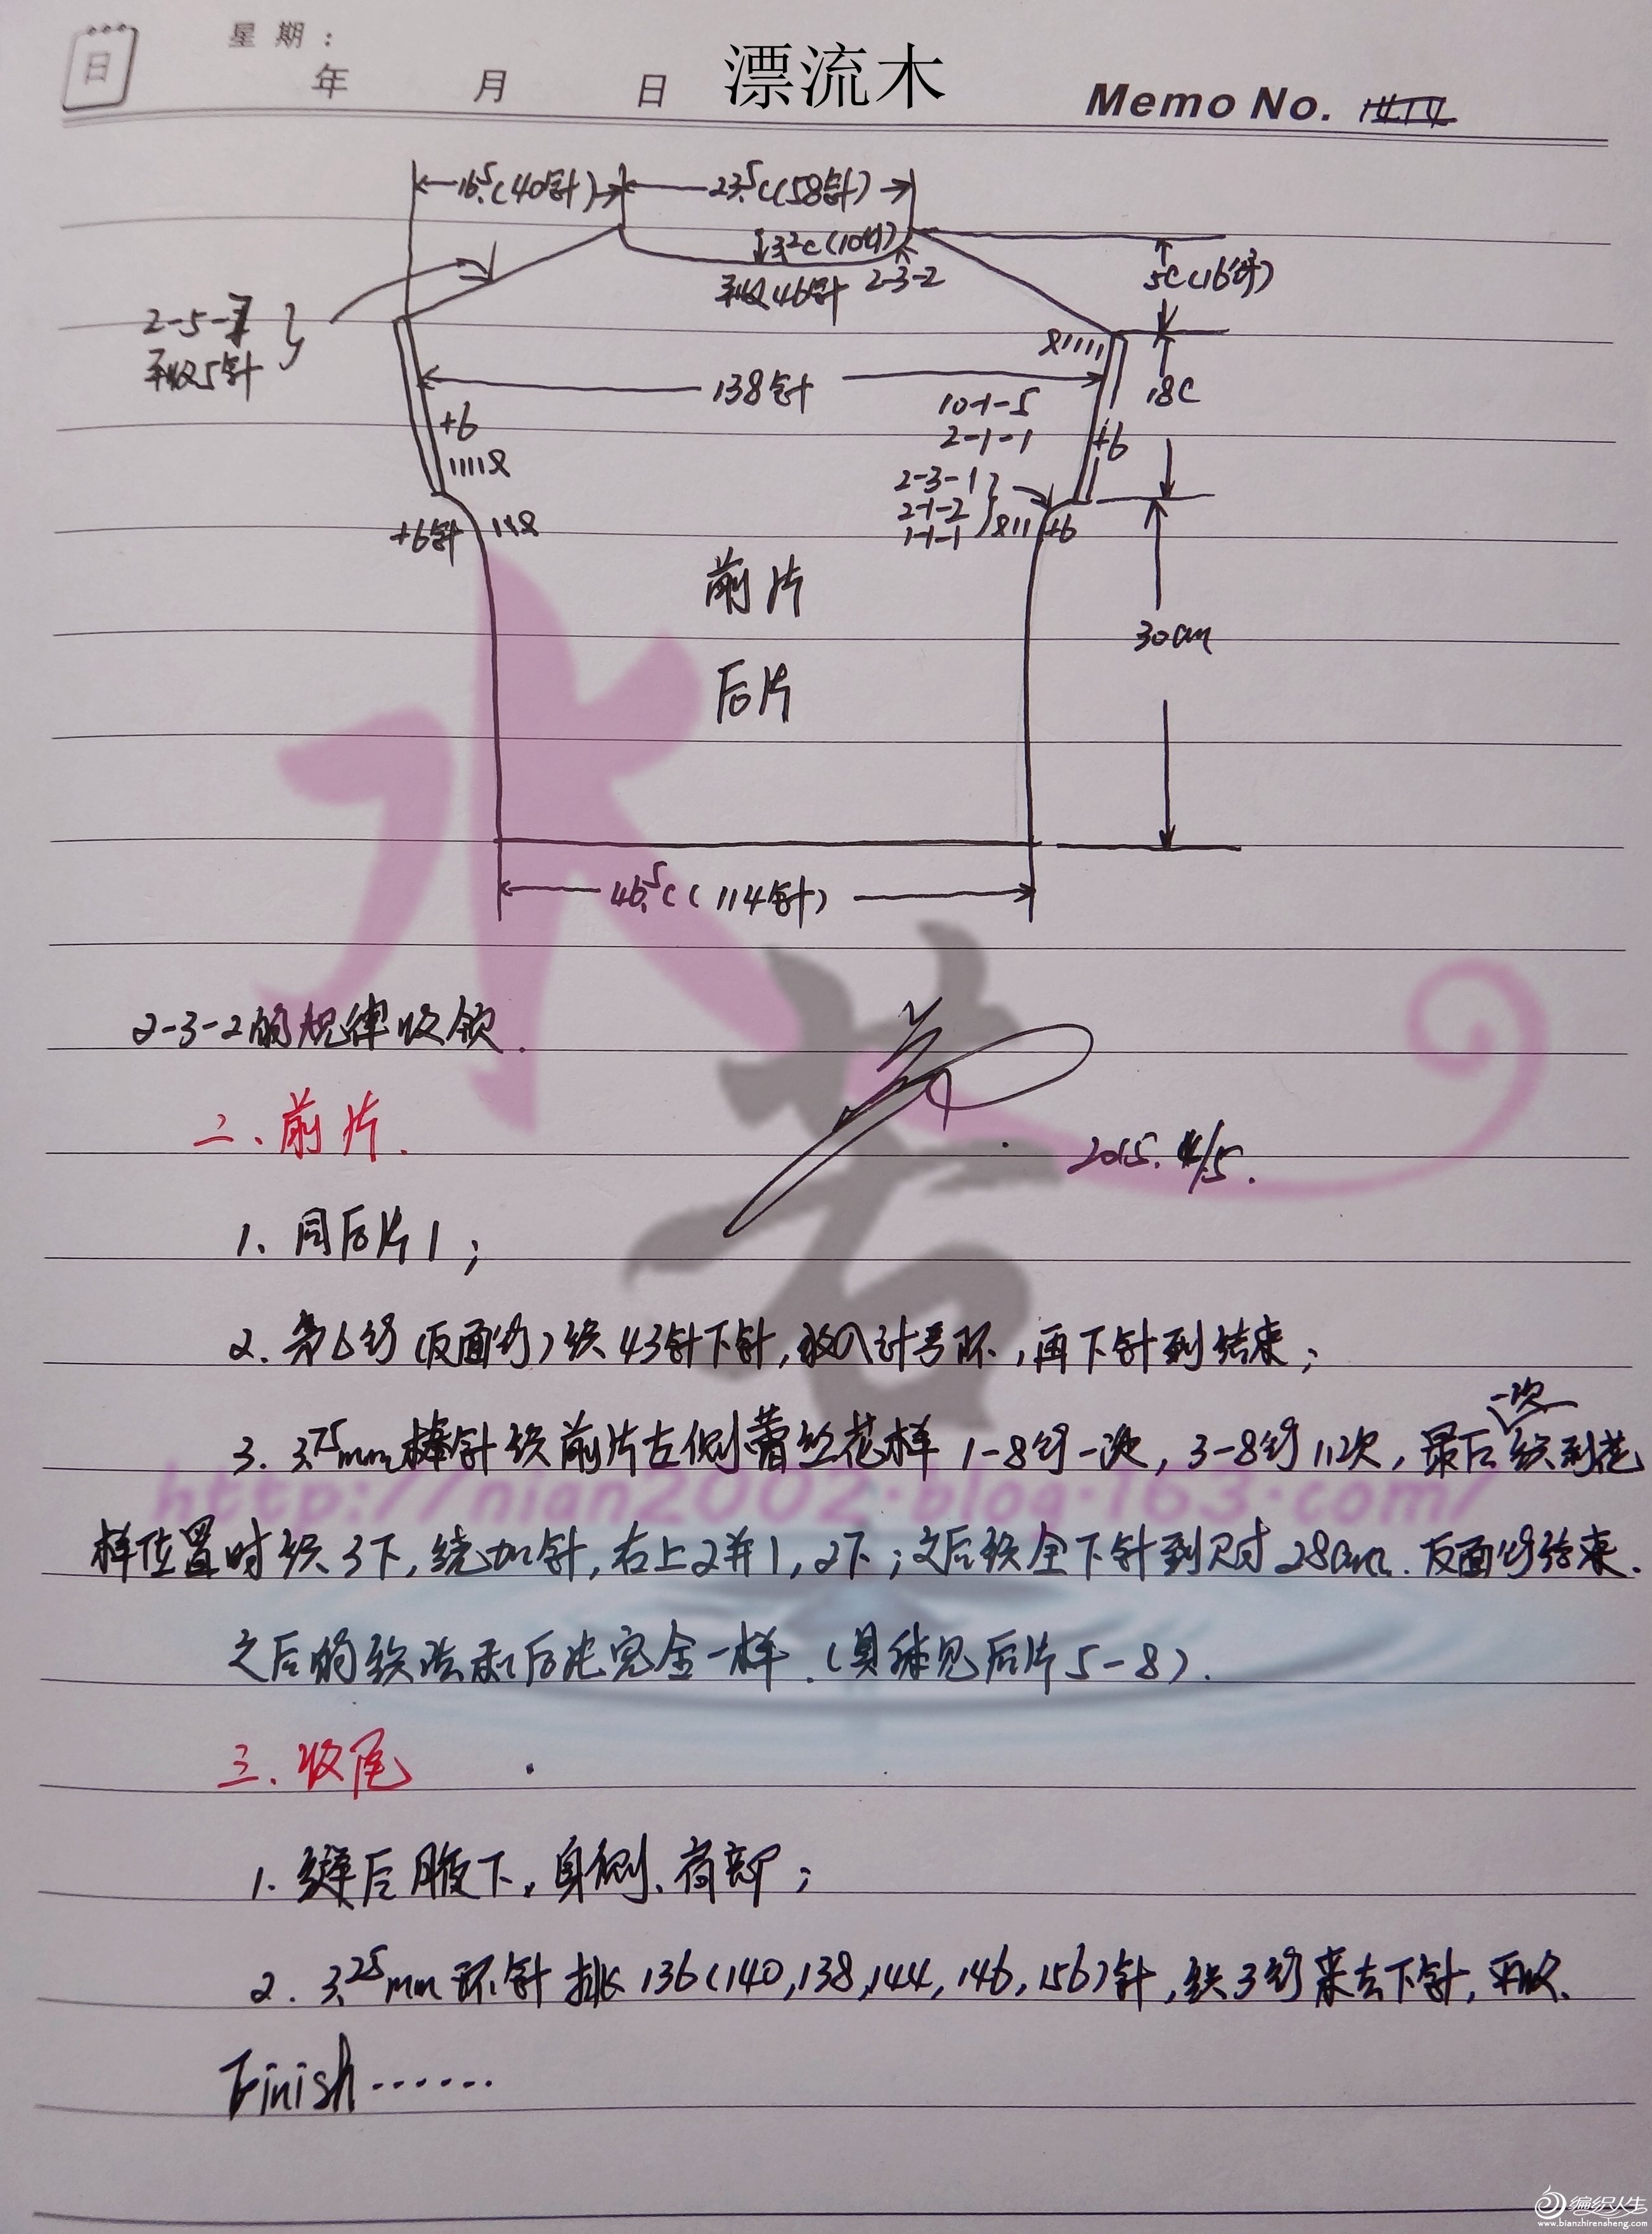 日
星 期 :
年 月 日 漂流木 Memo No.
16.5C(40针) 23.5C(58针)
3.2C(10行)
平收46针 2-3-2
5C(16行)
2-5-7
平收5针
138针
18C
10-1-5
2-1-1
+6
+6
2-3-1
2-1-2
1-1-1
+6针
+6
前片
后片
30cm
46.5C(114针)
2-3-2的规律收领.
二、前片.
2015. 4/5.
1、同后片1;
2. 第6行(反面行)织43针下针,放入计号环,再下针到结束;
3. 3.75mm棒针织前片左侧蕾丝花样1-8行一次,3-8行11次,最后一次织到花
样位置时织3下,绕加针,右上2并1,2下;之后织全下针到尺寸28cm.反面行结束.
之后的织法和后片完全一样.(具体见后片5-8).
三.收尾
1.缝合腋下、身侧、肩部;
2. 3.25mm环针挑136(140,138,144,146,156)针,织3行来去下针,平收.
Finish······
水若
http://nian2002.blog.163.com/
编织人生
www.bianzhirensheng.com